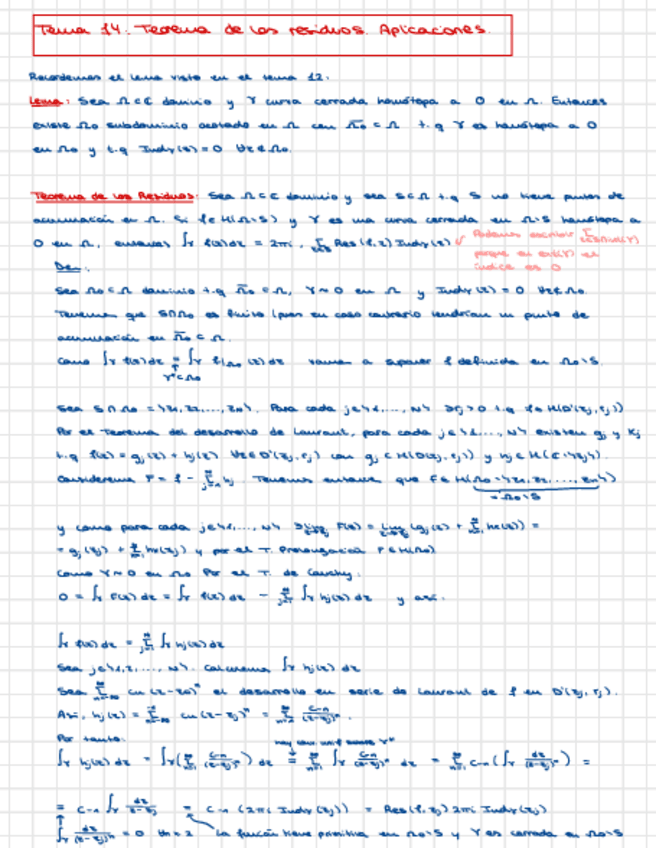 Tema 14. Teorema de los residuos. Aplicaciones.
Recordemos el lema visto en el tema 12:
Lema: Sea Ω⊂ℂ dominio y γ curva cerrada homótopa a 0 en Ω. Entonces
existe Ω₀ subdominio acotado en Ω con Ω̄₀ ⊂ Ω t.q γ es homótopa a 0
en Ω₀ y t.q Indγ(z)=0 ∀z∉Ω₀.
Teorema de los Residuos: Sea Ω⊂ℂ dominio y sea S⊂Ω t.q S no tiene puntos de
acumulación en Ω. Si f∈H(Ω\S) y γ es una curva cerrada en Ω\S homótopa a
0 en Ω, entonces ∫γ f(z)dz = 2πi Σ Res(f,z) Indγ(z)
Podemos escribir Σ
porque en ext(γ) el
índice es 0
De:
Sea Ω₀⊂Ω dominio t.q Ω̄₀ ⊂Ω, γ~0 en Ω y Indγ(z)=0 ∀z∉Ω₀.
Tenemos que S∩Ω₀ es finito (pues en caso contrario tendrían un punto de
acumulación en Ω̄₀ ⊂ Ω.
Como ∫γ f(z)dz = ∫γ f|Ω₀ (z)dz vamos a suponer f definida en Ω₀\S.
γ*⊂Ω₀
Sea S∩Ω₀ = {z₁, z₂, ..., z_N}. Para cada j∈{1, ..., N} ∃rj>0 t.q f∈H(D'(zj,rj))
Por el Teorema del desarrollo de Laurent, para cada j∈{1, ..., N} existen gj y hj
t.q f(z) = gj(z) + hj(z) ∀z∈D'(zj,rj) con gj∈H(D(zj,rj)) y hj∈H(ℂ\{zj}).
Consideremos F = f - Σ hj. Tenemos entonces que F∈H(Ω₀\{z₁,z₂, ..., z_N})
= Ω₀\S
y como para cada j∈{1, ..., N} ∃lim F(z) = lim (gj(z) + Σ hk(z)) =
= gj(zj) + Σ hk(zj) y por el T. Prolongación F∈H(Ω₀)
Como γ~0 en Ω₀ Por el T. de Cauchy:
0 = ∫γ F(z) dz = ∫γ f(z) dz - Σ ∫γ hj(z) dz y así:
∫γ f(z) dz = Σ ∫γ hj(z) dz
Sea j∈{1,2, ..., N}. Calculemos ∫γ hj(z) dz
Sea Σ cn (z-z₀)ⁿ el desarrollo en serie de Laurent de f en D'(zj, rj).
Así, hj(z) = Σ cn (z-zj)ⁿ = Σ c-n/(z-zj)ⁿ.
Por tanto: hay conv. unif sobre γ*
∫γ hj(z) dz = ∫γ(Σ c-n/(z-zj)ⁿ) dz = Σ ∫γ c-n/(z-zj)ⁿ dz = Σ c-n (∫γ dz/(z-zj)ⁿ) =
= c-1 ∫γ dz/(z-zj) = c-1 (2πi Indγ(zj)) = Res(f,zj) 2πi Indγ(zj)
∫γ dz/(z-zj)ⁿ = 0 ∀n≥2 la función tiene primitiva en Ω₀\S y γ es cerrada en Ω₀\S